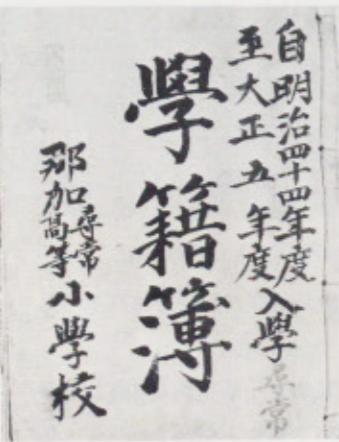 自明治四十四年度
至大正五年度入學
尋常
學籍簿
那加尋常高等小學校